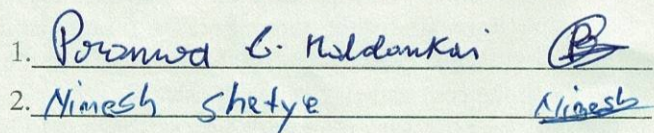 1. Pramod G. Haldankar
2. Nimesh Shetye Nimesh